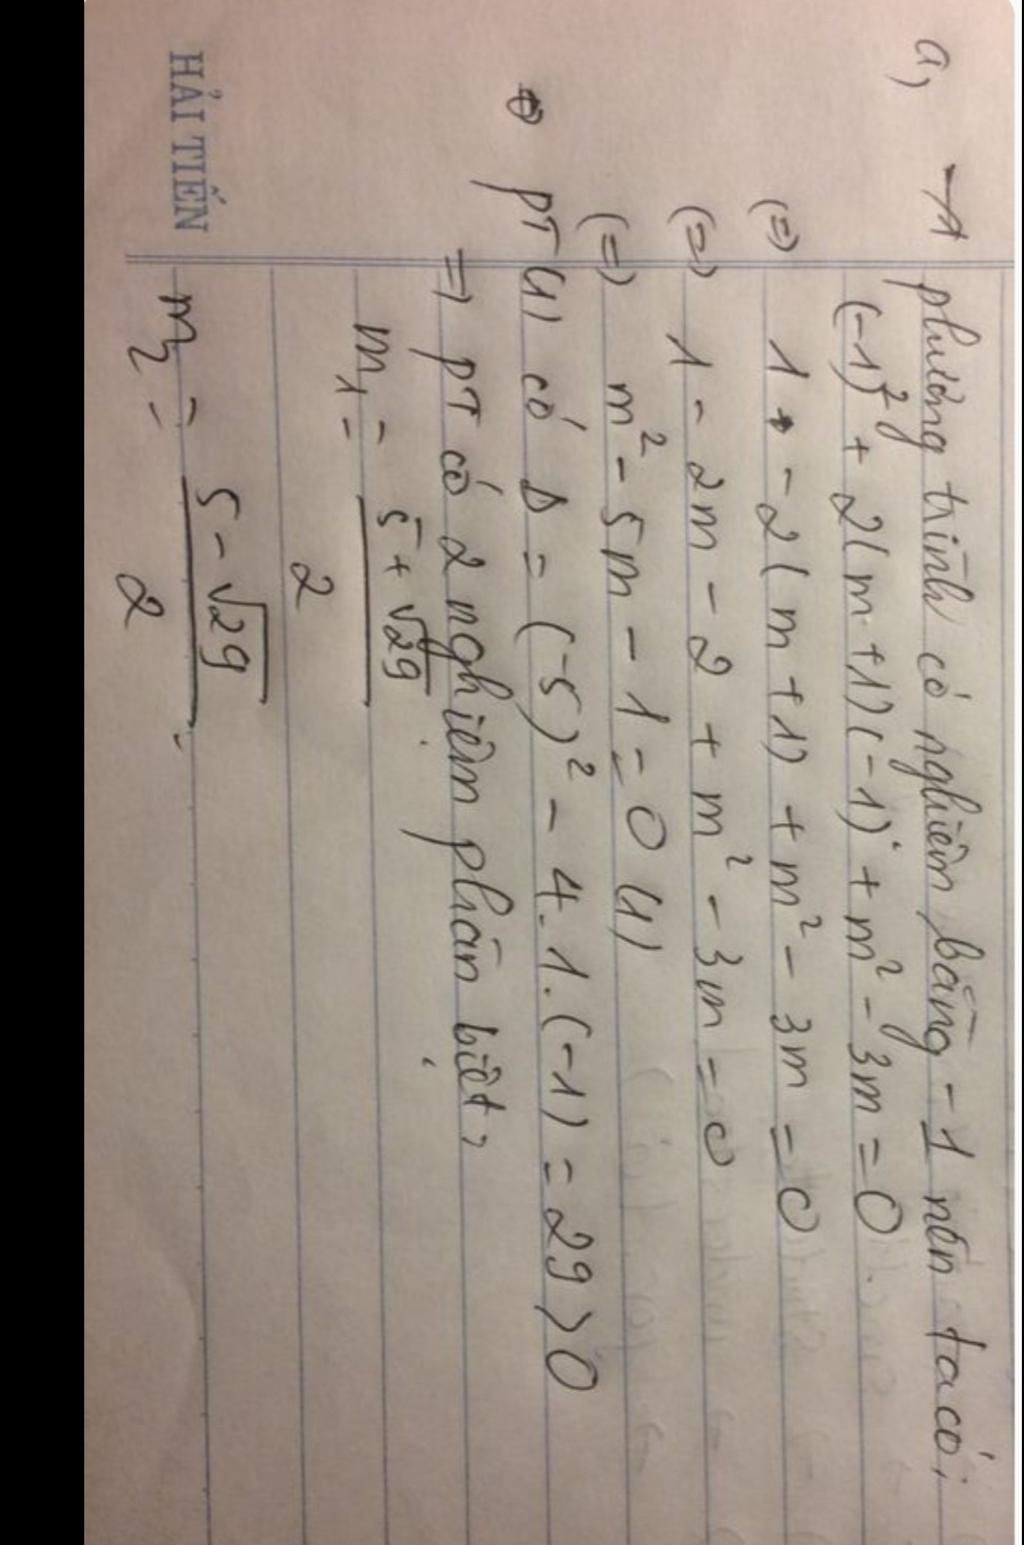 a, phương trình có nghiệm bằng -1 nên ta có,
(-1)² + 2(m+1)(-1) + m² - 3m = 0
(=) 1 - 2(m+1) + m² - 3m = 0
(=) 1 - 2m - 2 + m² - 3m = 0
(=) m² - 5m - 1 = 0 (1)
PT (1) có Δ = (-5)² - 4.1.(-1) = 29 > 0
=> PT có 2 nghiệm phân biệt,
m₁ = 5 + √29 / 2
m₂ = 5 - √29 / 2
HẢI TIẾN